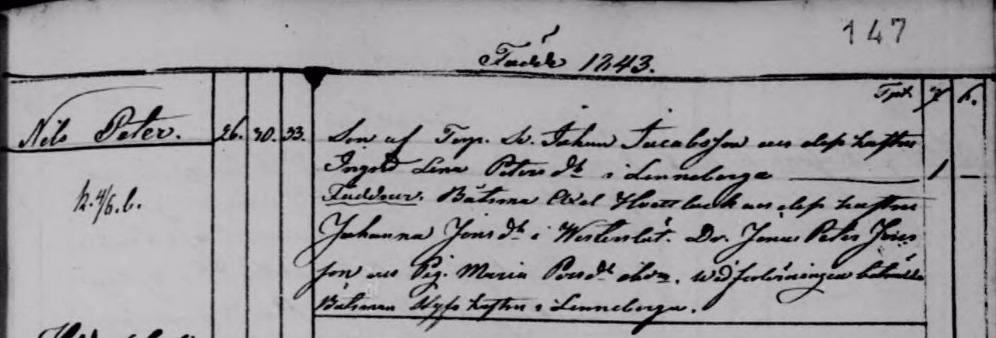 147
Född 1843.
Tpt. 7. 6.
Nils Peter. 26. 30. 33. Son af Torp. Sv. Johan Jacobsson och dess hustru
Ingrid Lena Peters dr i Lenneberga 1 —
Faddrar. Båtsman Axel och dess hustru
Johanna Jons dr i Westerslät. Dr. Jonas Peter Jons-
son och Pig. Maria Pers dr ibm. Wid förlösningen biträdde
Båtsman hustru i Lenneberga.